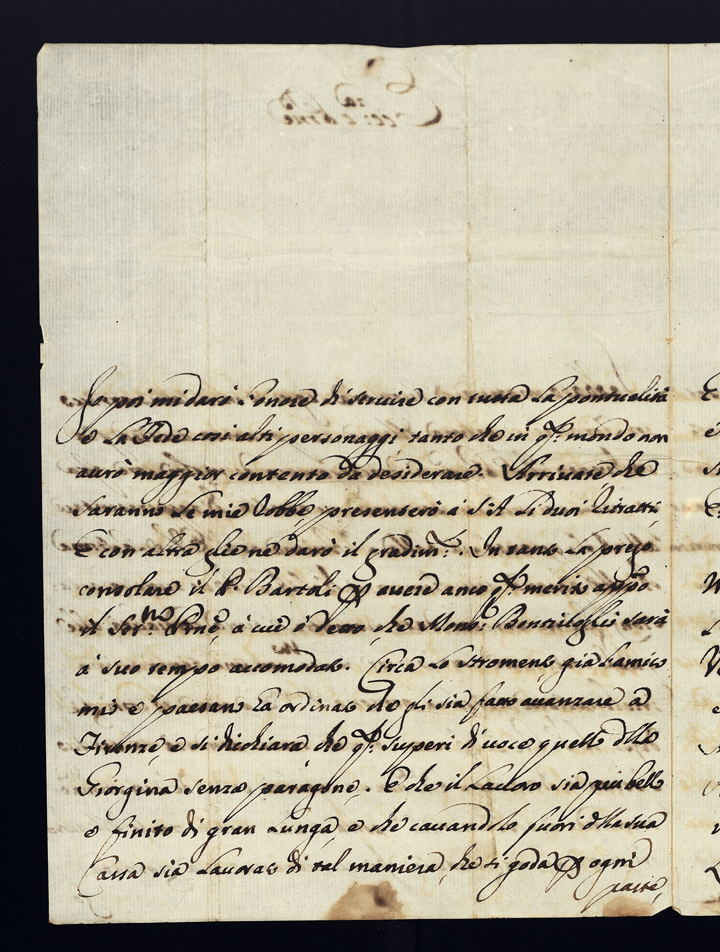 Io poi mi darò l'onore di servire con tutta la pontualità
e la Fede così alti personaggi, tanto che in q.to mondo non
avrò maggior contento da desiderare. Arrivate che
saranno le mie robbe, presenterò à S:A: li duoi ritratti,
E con altra gliene darò il gradim.to. In tanto la prego
consolare il P. Bartoli per avere anco q.to merito appo
il Ser.mo Prñe, à cui ò detto che Mons.r Bentivoglio sarà
à suo tempo accomodato. Circa lo stromento già l'amico
mio e paesano hà ordinato che gli sia fatto avanzare a
Firenze, e si dichiara che q.to superi di voce quello della
Giorgina senza paragone. E che il Lavoro sia più bello
e finito di gran lunga, e che cavandolo fuori della sua
Cassa sia lavorato di tal maniera, che si goda per ogni
parte,